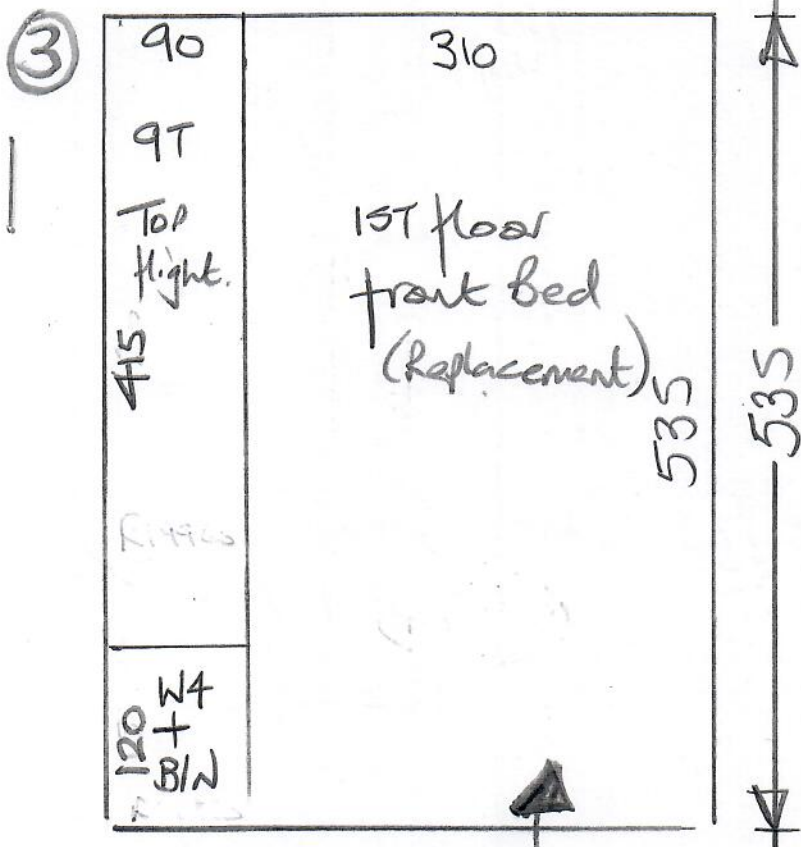 3
90
310
9T
Top
flight.
415
1ST floor
front Bed
(Replacement)
535
535
120
W4
+
B/N